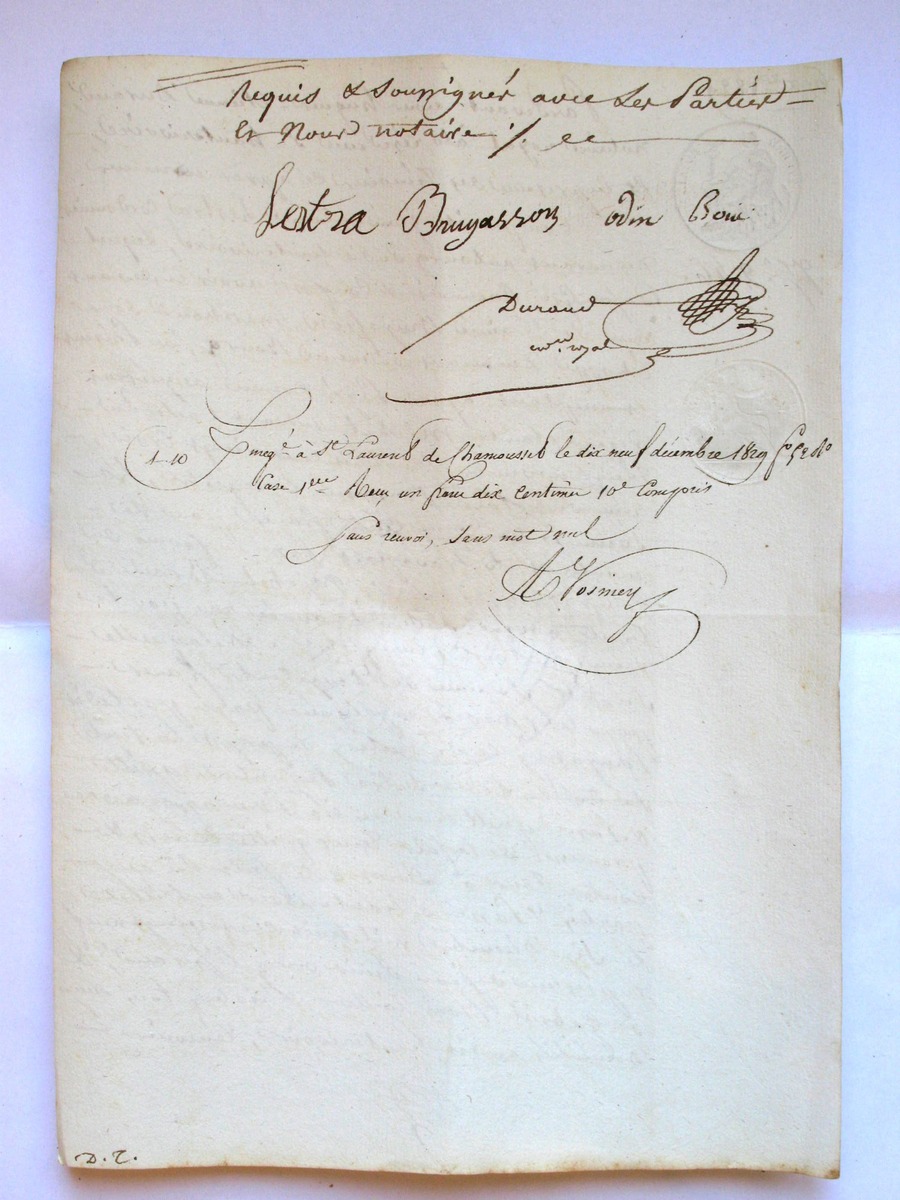 Requis & soussignés avec Les Parties
Et Nous notaire ./. 
Lestra Bruyasson odin Boui
Durand
nre. royal
1-10 Enregé. à St Laurent de Chamousset le dix neuf décembre 1829 fo. 52 Ro
Case 1ere Reçu un franc dix Centimes 10e Compris
Sans renvoi, Sans mot nul
D. T.